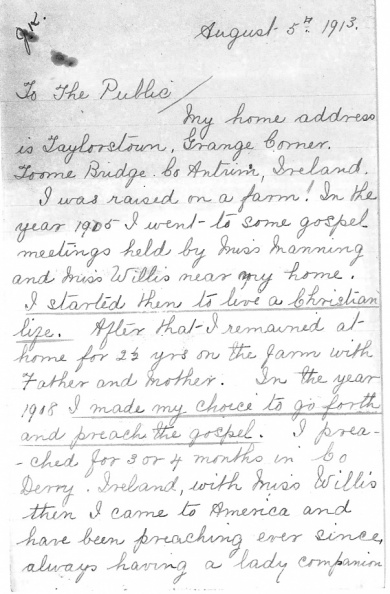 J.K.
August 5th. 1913.
To The Public /
My home address
is Taylorstown, Grange Corner.
Toome Bridge. Co Antrim, Ireland.
I was raised on a farm! In the
year 1905 I went to some gospel
meetings held by Miss Manning
and Miss Willis near my home.
I started then to live a Christian
life. After that I remained at
home for 2½ yrs on the farm with
Father and Mother. In the year
1908 I made my choice to go forth
and preach the gospel. I prea-
-ched for 3 or 4 months in Co
Derry. Ireland, with Miss Willis
then I came to America and
have been preaching ever since,
always having a lady companion